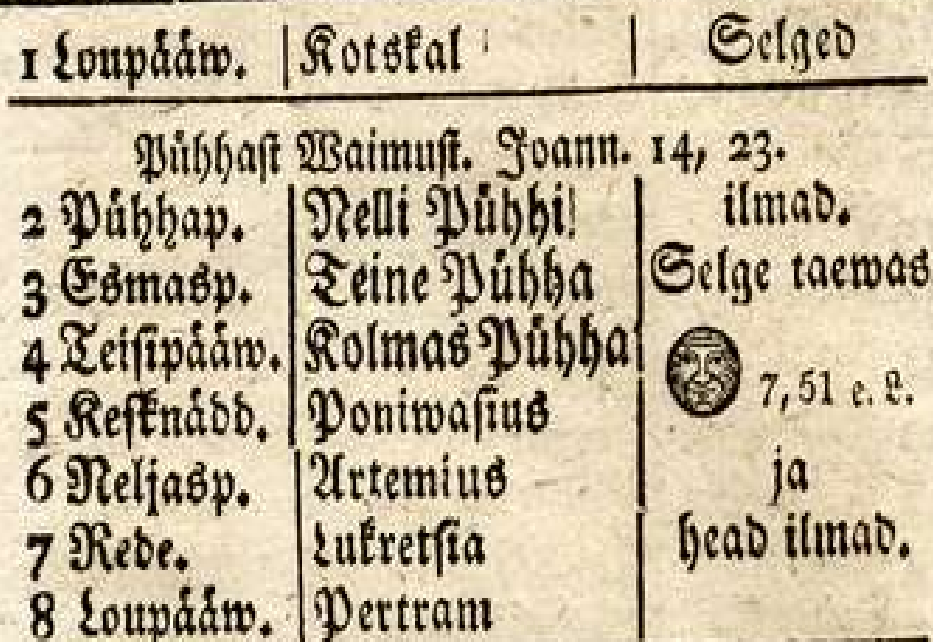 1 Loupääw. Kotskal Selged
Pühhast Waimust. Joann. 14, 23.
2 Pühhap. Nelli Pühhi! ilmad.
3 Esmasp. Teine Pühha Selge taewas
4 Teisipääw. Kolmas Pühha
5 Kesknädd. Poniwasius 7, 51 e. L.
6 Neljasp. Artemius ja
7 Rede. Lukretsia head ilmad.
8 Loupääw. Pertram